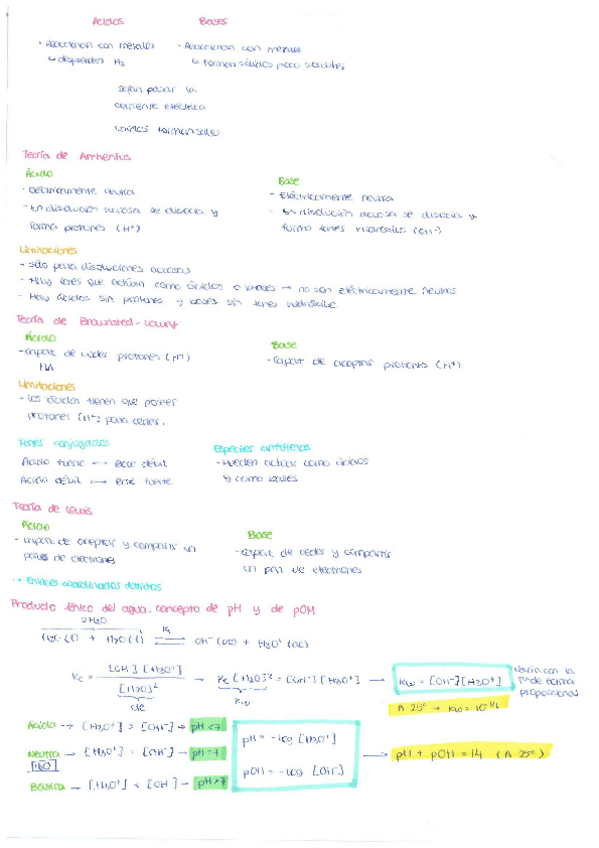 Ácidos Bases
· Reaccionan con metales · Reaccionan con metales
↳ desprenden H₂ ↳ forman sólidos poco solubles
Dejan pasar la
corriente eléctrica
Teoría de Arrhenius
Ácido Base
· Eléctricamente neutra - Eléctricamente neutra
- En disolución acuosa se disocia y - En disolución acuosa se disocia y
forma protones (H⁺) forma iones hidróxilo (OH⁻)
Limitaciones
- Sólo para disoluciones acuosas
- Hay iones que actúan como ácidos o bases → no son eléctricamente neutros
- Hay ácidos sin protones y bases sin iones hidróxilo
Teoría de Brownsted-Lowry
Ácido Base
- Capaz de ceder protones (H⁺) - Capaz de aceptar protones (H⁺)
HA
Limitaciones
- Los ácidos tienen que poseer
protones (H⁺) para ceder.
Pares conjugados Especies anfóteras
Ácido fuerte → Base débil - Pueden actuar como ácidos
Ácido débil → Base fuerte y como bases
Teoría de Lewis
Ácido Base
- capaz de aceptar y compartir un - capaz de ceder y compartir
pares de electrones un par de electrones
-- Enlaces coordinados dativos
Producto iónico del agua. concepto de pH y de pOH
2H₂O
H₂O (l) + H₂O (l) ⇌ OH⁻ (ac) + H₃O⁺ (ac)
Kc = [OH⁻][H₃O⁺] / [H₂O]² → Kc [H₂O]² = [OH⁻][H₃O⁺] → Kw = [OH⁻][H₃O⁺] Varía con la Tª de forma proporcional
cte Kw A 25º → Kw = 10⁻¹⁴
Ácida → [H₃O⁺] > [OH⁻] → pH < 7 pH = -log [H₃O⁺]
Neutra → [H₃O⁺] = [OH⁻] → pH = 7 → pH + pOH = 14 (A 25º)
[H₂O] pOH = -log [OH⁻]
Básica → [H₃O⁺] < [OH⁻] → pH > 7